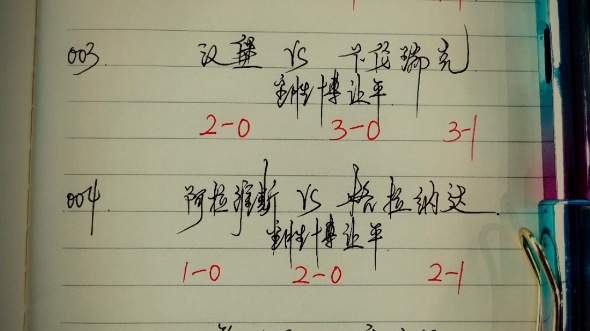 003. 汉堡 VS 卡伦瑞克
主胜博让平
2-0 3-0 3-1
004. 阿拉维斯 VS 格拉纳达
主胜博让平
1-0 2-0 2-1